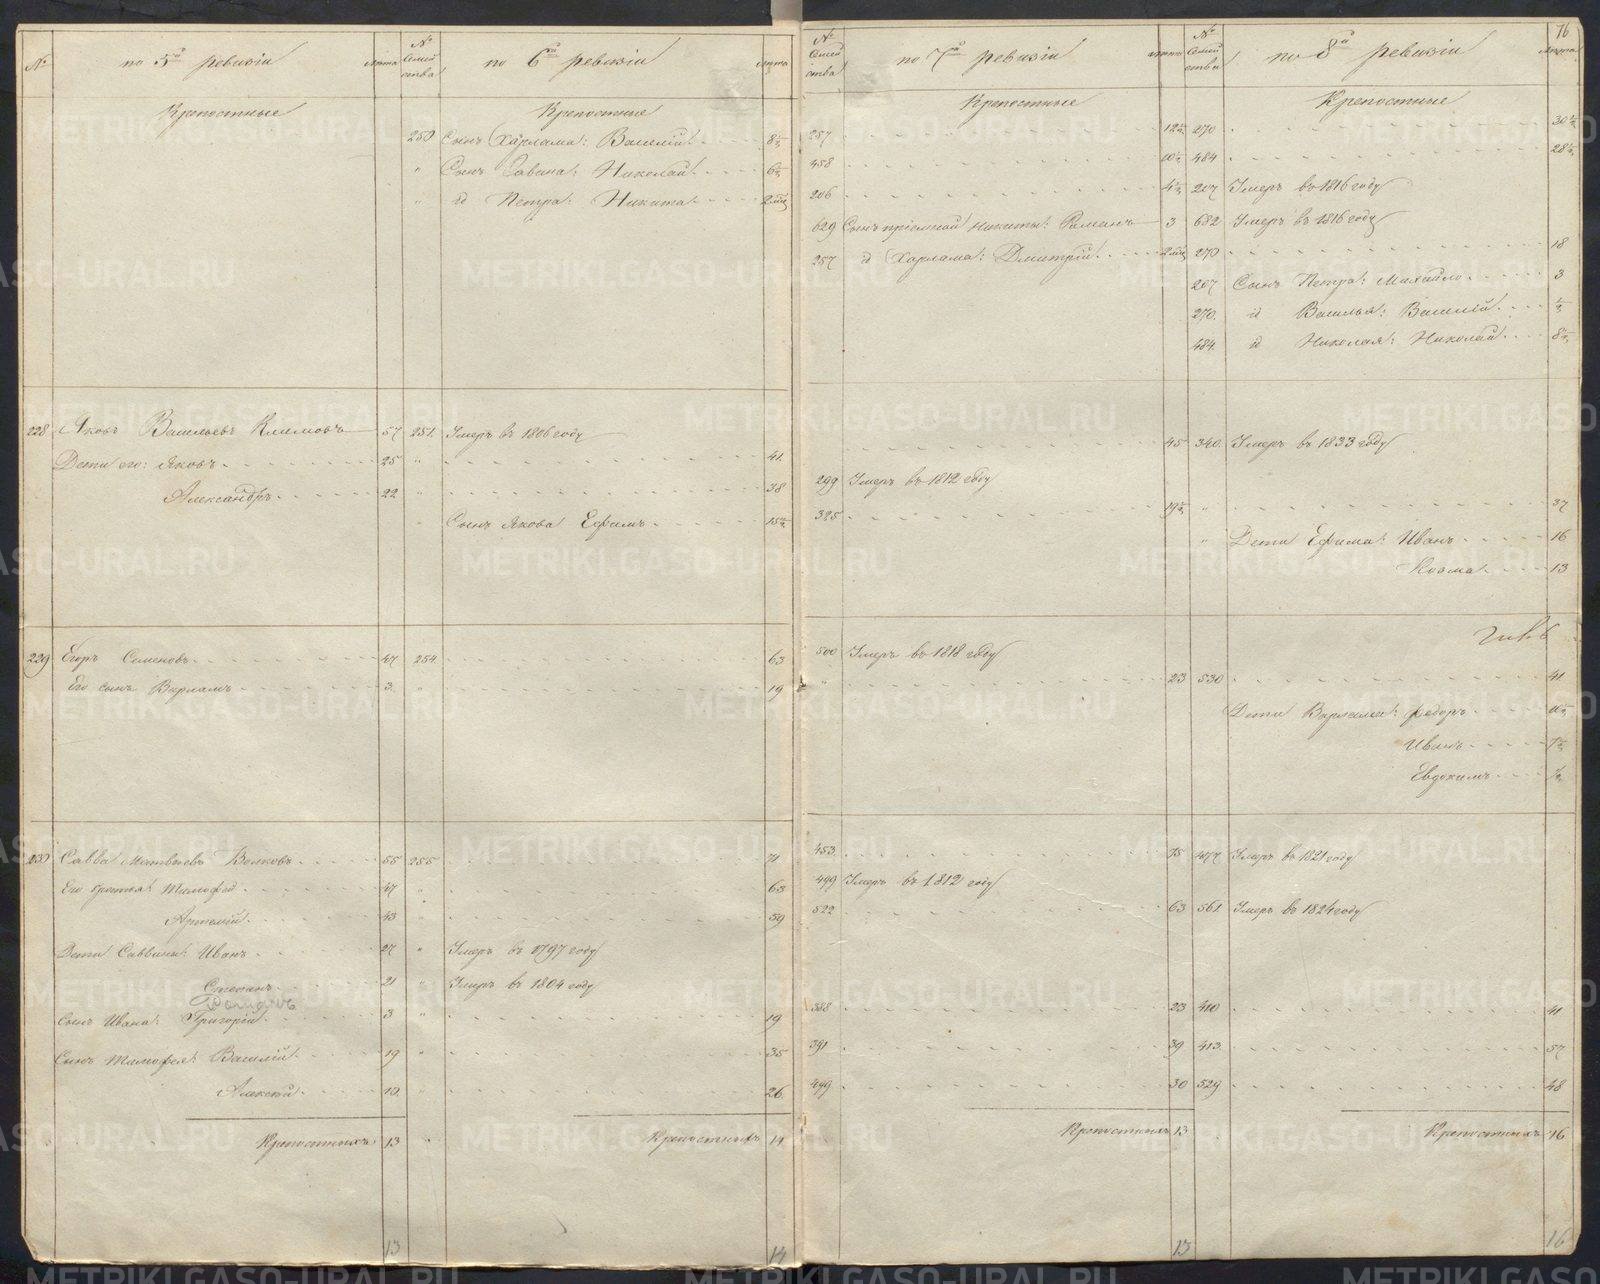 76
№ по 5й ревизіи лѣта № Семейства по 6й ревизіи лѣта
Крепостные Крепостные
250 Сынъ Харлама: Василій 8½
" Сынъ Савина: Николай 6½
" id Петра: Никита
228 Яковъ Васильевъ Климовъ 57 251 Умеръ въ 1806 году
Дети его: Яковъ 25 " 41
Александръ 22 " 38
" Сынъ Якова Ефимъ 15½
229 Егоръ Семеновъ 47 254 63
Его сынъ Варламъ 3 " 19
230 Савва Матвѣевъ Волковъ 55 255 71
Его братья: Тимофей 47 " 63
Артемій 43 " 59
Дети Саввины: Иванъ 27 " Умеръ въ 1797 году
Степанъ 21 " Умеръ въ 1804 году
Сынъ Ивана: Григорій 3 " 19
Сынъ Тимофея: Василій 19 " 35
Алексей 10 " 26
Крепостныхъ 13 Крепостныхъ 14
13 14
№ Семейства по 7й ревизіи лѣта № Семейства по 8й ревизіи лѣта
Крепостные Крепостные
257 12½ 270 30½
458 10½ 484 28½
206 4½ 207 Умеръ въ 1816 году
629 Сынъ пріемный Никиты: Романъ 3 682 Умеръ въ 1816 году
257 id Харлама: Дмитрій 270 18
207 Сынъ Петра: Михайло 3
270 id Василья: Василій ½
484 id Николая: Николай 8½
45 340 Умеръ въ 1833 году
299 Умеръ въ 1812 году
325 19½ " 37
" Дети Ефима: Иванъ 16
Козма 13
500 Умеръ въ 1818 году
" 23 530 41
Дети Варлама: Федоръ
Иванъ
Евдокимъ ½
453 75 477 Умеръ въ 1821 году
499 Умеръ въ 1812 году
522 63 561 Умеръ въ 1824 году
388 23 410 41
391 39 413 57
499 30 529 48
Крепостныхъ 13 Крепостныхъ 16
13 16
METRIKI.GASO-URAL.RU